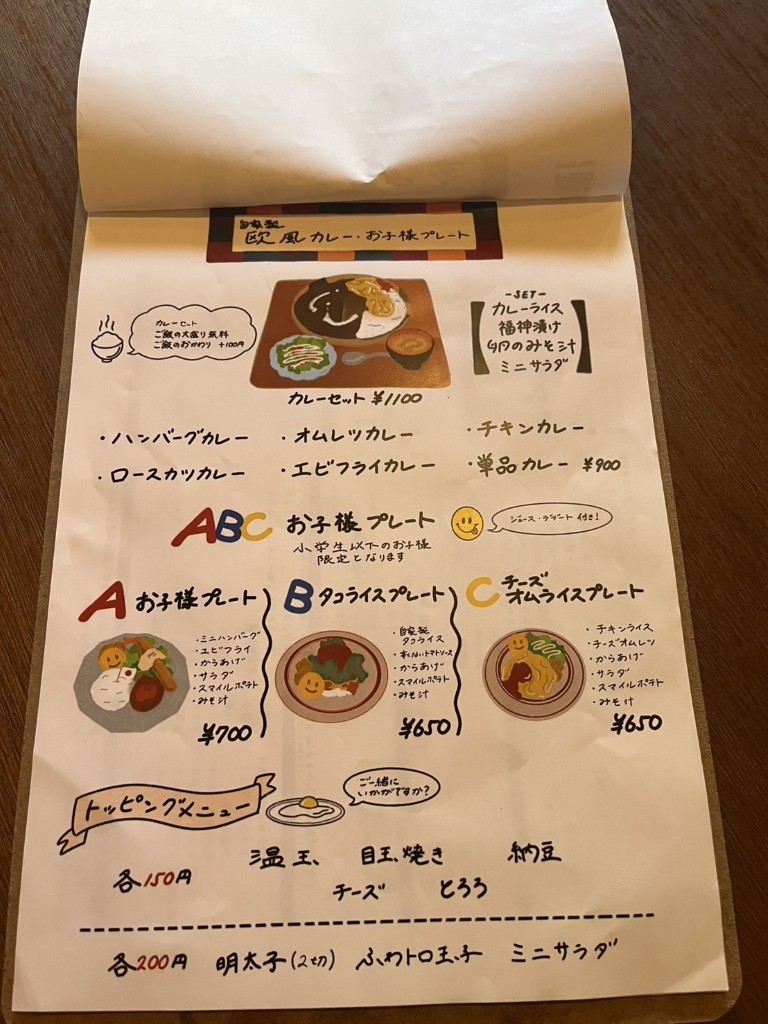 自家製
欧風カレー・お子様プレート
カレーセット
ご飯の大盛り無料
ご飯のおかわり +100円
-SET-
カレーライス
福神漬け
のみそ汁
ミニサラダ
カレーセット ¥1100
・ハンバーグカレー ・オムレツカレー ・チキンカレー
・ロースカツカレー ・エビフライカレー ・単品カレー ¥900
ABC お子様プレート
ジュース・デザート付き!
小学生以下のお子様
限定となります
A お子様プレート
・ミニハンバーグ
・エビフライ
・からあげ
・サラダ
・スマイルポテト
・みそ汁
¥700
B タコライスプレート
・自家製
タコライス
・辛くないトマトソース
・からあげ
・スマイルポテト
・みそ汁
¥650
C チーズ
オムライスプレート
・チキンライス
・チーズオムレツ
・からあげ
・サラダ
・スマイルポテト
・みそ汁
¥650
トッピングメニュー
ご一緒に
いかがですか?
各150円 温玉 目玉焼き 納豆
チーズ とろろ
各200円 明太子(2切) ふわトロ玉子 ミニサラダ